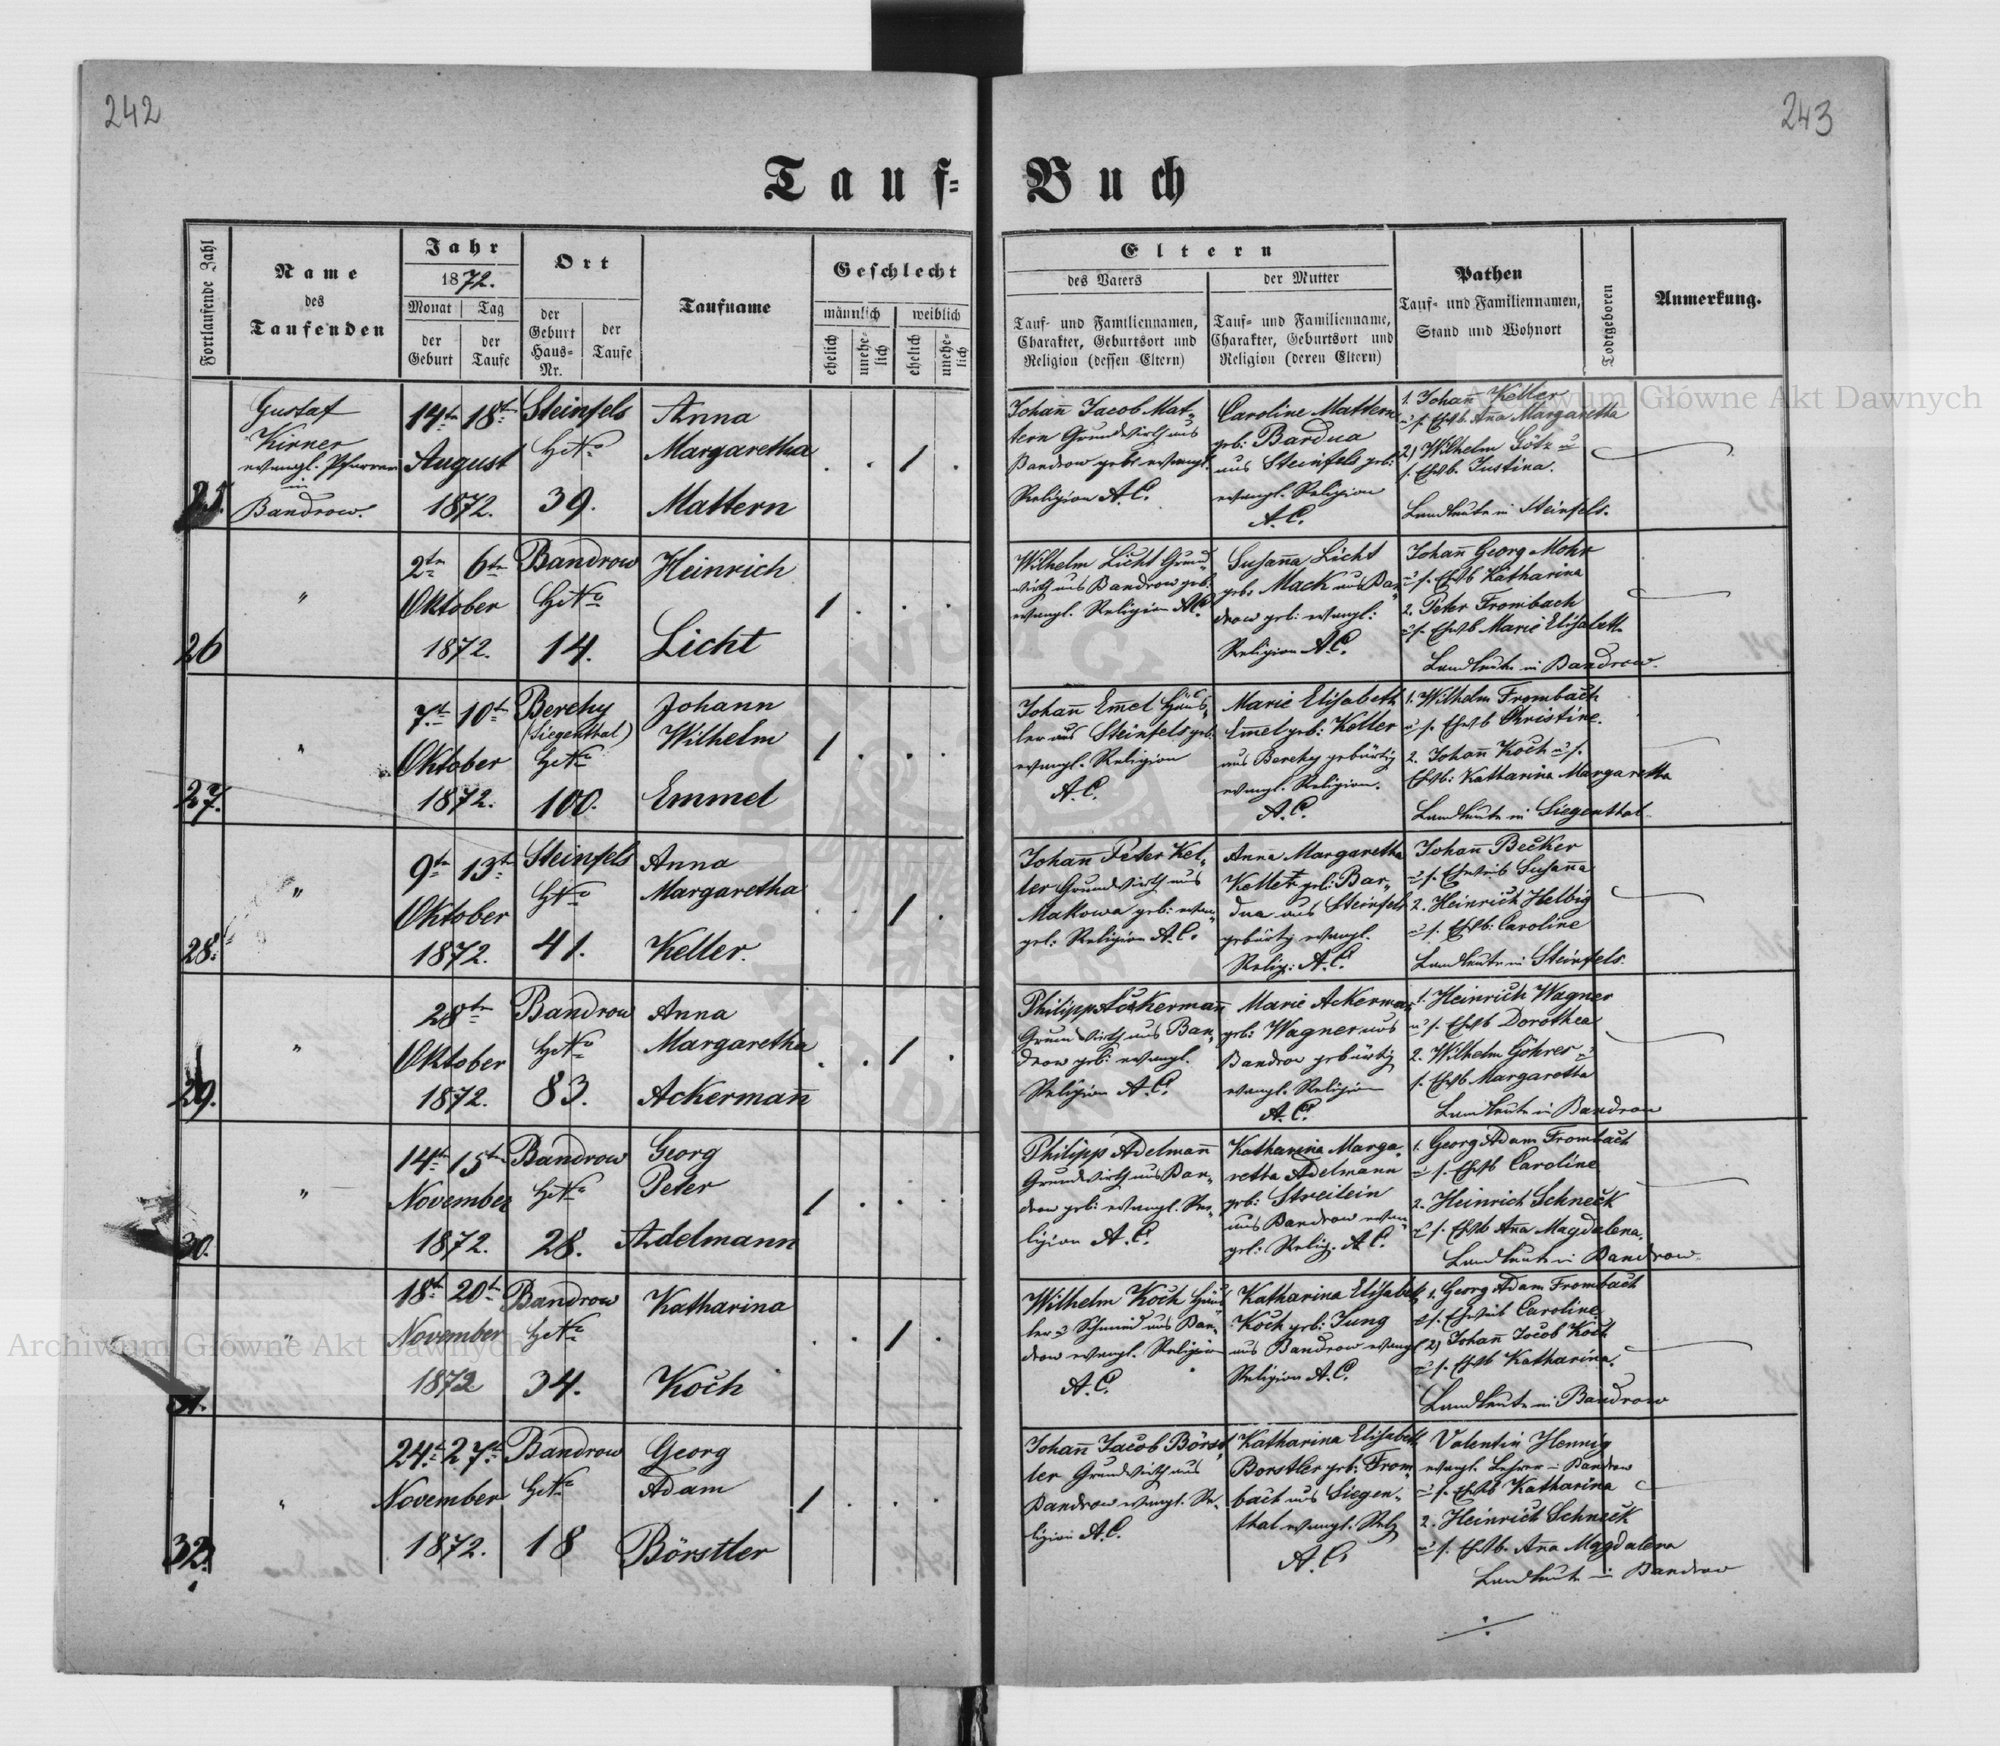 242
243
Tauf=Buch
Fortlaufende Zahl
Name
des
Taufenden
Jahr
1872.
Monat
Tag
der
Geburt
der
Taufe
Ort
der
Geburt
Haus=
Nr.
der
Taufe
Taufname
Geschlecht
männlich
weiblich
ehelich
unehe=
lich
ehelich
unehe=
lich
Eltern
des Vaters
Tauf= und Familiennamen,
Charakter, Geburtsort und
Religion (dessen Eltern)
der Mutter
Tauf= und Familienname,
Charakter, Geburtsort und
Religion (deren Eltern)
Pathen
Tauf= und Familiennamen,
Stand und Wohnort
Todtgeboren
Anmerkung.
25.
Gustaf
Kirner
evangl. Pfarrer
in
Bandrow.
14te 18te
August
1872.
Steinfels
HsNo
39.
Anna
Margaretha
Mattern
Johan̄ Jacob Mat=
tern Grundwirth aus
Bandrow geb: evangl.
Religion A.C.
Caroline Mattern
geb: Bardua
aus Steinfels geb:
evangl. Religion
A.C.
1. Johan̄ Keller
u s. Ehwb. An̄a Margaretha
2) Wilhelm Götz u
s. Ehwb. Justina.
Landleute in Steinfels.
26
"
2te 6te
Oktober
1872.
Bandrow
HsNo
14.
Heinrich
Licht
Wilhelm Licht Grund=
wirth aus Bandrow geb:
evangl. Religion A.C.
Susan̄a Licht
geb: Mack aus Ban=
drow geb: evangl:
Religion A.C.
Johan̄ Georg Mohr
u s. Ehwb Katharina
2. Peter Frombach
u s. Ehwb Marie Elisabeth
Landleute in Bandrow.
27.
"
7te 10te
Oktober
1872.
Berehy
(Siegenthal)
HsNo
100.
Johann
Wilhelm
Emmel
Johan̄ Em̄el Häus=
ler aus Steinfels geb:
evangl. Religion
A.C.
Marie Elisabeth
Em̄el geb: Keller
aus Berehy gebürtig
evangl. Religion.
A.C.
1. Wilhelm Frombach
u s. Ehwb Christine.
2. Johan̄ Koch u s.
Ehwb: Katharina Margaretha
Landleute in Siegenthal
28.
"
9te 13te
Oktober
1872.
Steinfels
HsNo
41.
Anna
Margaretha
Keller.
Johan̄ Peter Kel=
ler Grundwirth aus
Makowa geb: evan=
gel: Religion A.C.
Anna Margaretha
Keller geb: Bar=
dua aus Steinfels
gebürtig evangl.
Relig: A.C.
Johan̄ Becker
u s. Eheweib Susan̄a
2. Heinrich Helbig
u s. Ehwb: Caroline
Landleute in Steinfels.
29.
"
28te
Oktober
1872.
Bandrow
HsNo
83.
Anna
Margaretha
Ackerman̄
Philipp Ackerman̄
Grundwirth aus Ban=
drow geb: evangl.
Religion A.C.
Marie Ackerman̄
geb: Wagner aus
Bandrow gebürtig
evangl. Religion
A.C.
1. Heinrich Wagner
u s. Ehwb Dorothea
2. Wilhelm Göhres u
s. Ehwb Margaretha
Landleute in Bandrow
30.
"
14te 15te
November
1872.
Bandrow
HsNo
28.
Georg
Peter
Adelmann
Philipp Adelman̄
Grundwirth aus Ban=
drow geb: evangl. Re=
ligion A.C.
Katharina Marga=
retha Adelmann
geb: Streilein
aus Bandrow evan=
gel: Relig. A.C.
1. Georg Adam Frombach
u s. Ehwb Caroline
2. Heinrich Schneck
u s. Ehwb An̄a Magdalena.
Landleute in Bandrow.
31.
"
18te 20te
November
1872
Bandrow
HsNo
34.
Katharina
Koch
Wilhelm Koch Häus=
ler u Schmied aus Ban=
drow evangl. Religion
A.C.
Katharina Elisabeth
Koch geb: Jung
aus Bandrow evangl
Religion A.C.
1. Georg Adam Frombach
u s. Eheweib Caroline
2) Johan̄ Jacob Koch
u s. Ehwb Katharina.
Landleute in Bandrow
32.
"
24te 27te
November
1872.
Bandrow
HsNo
18
Georg
Adam
Börstler
Johan̄ Jacob Börst=
ler Grundwirth aus
Bandrow evangl. Re=
ligion A.C.
Katharina Elisabeth
Borstler geb: From=
bach aus Siegen=
thal evangl. Relg
A.C.
Valentin Hennig
evangl. Lehrer in Bandrow
u s. Ehwb Katharina
2. Heinrich Schneck
u s. Ehwb. An̄a Magdalena
Landleute in Bandrow
Archiwum Główne Akt Dawnych
Archiwum Główne Akt Dawnych